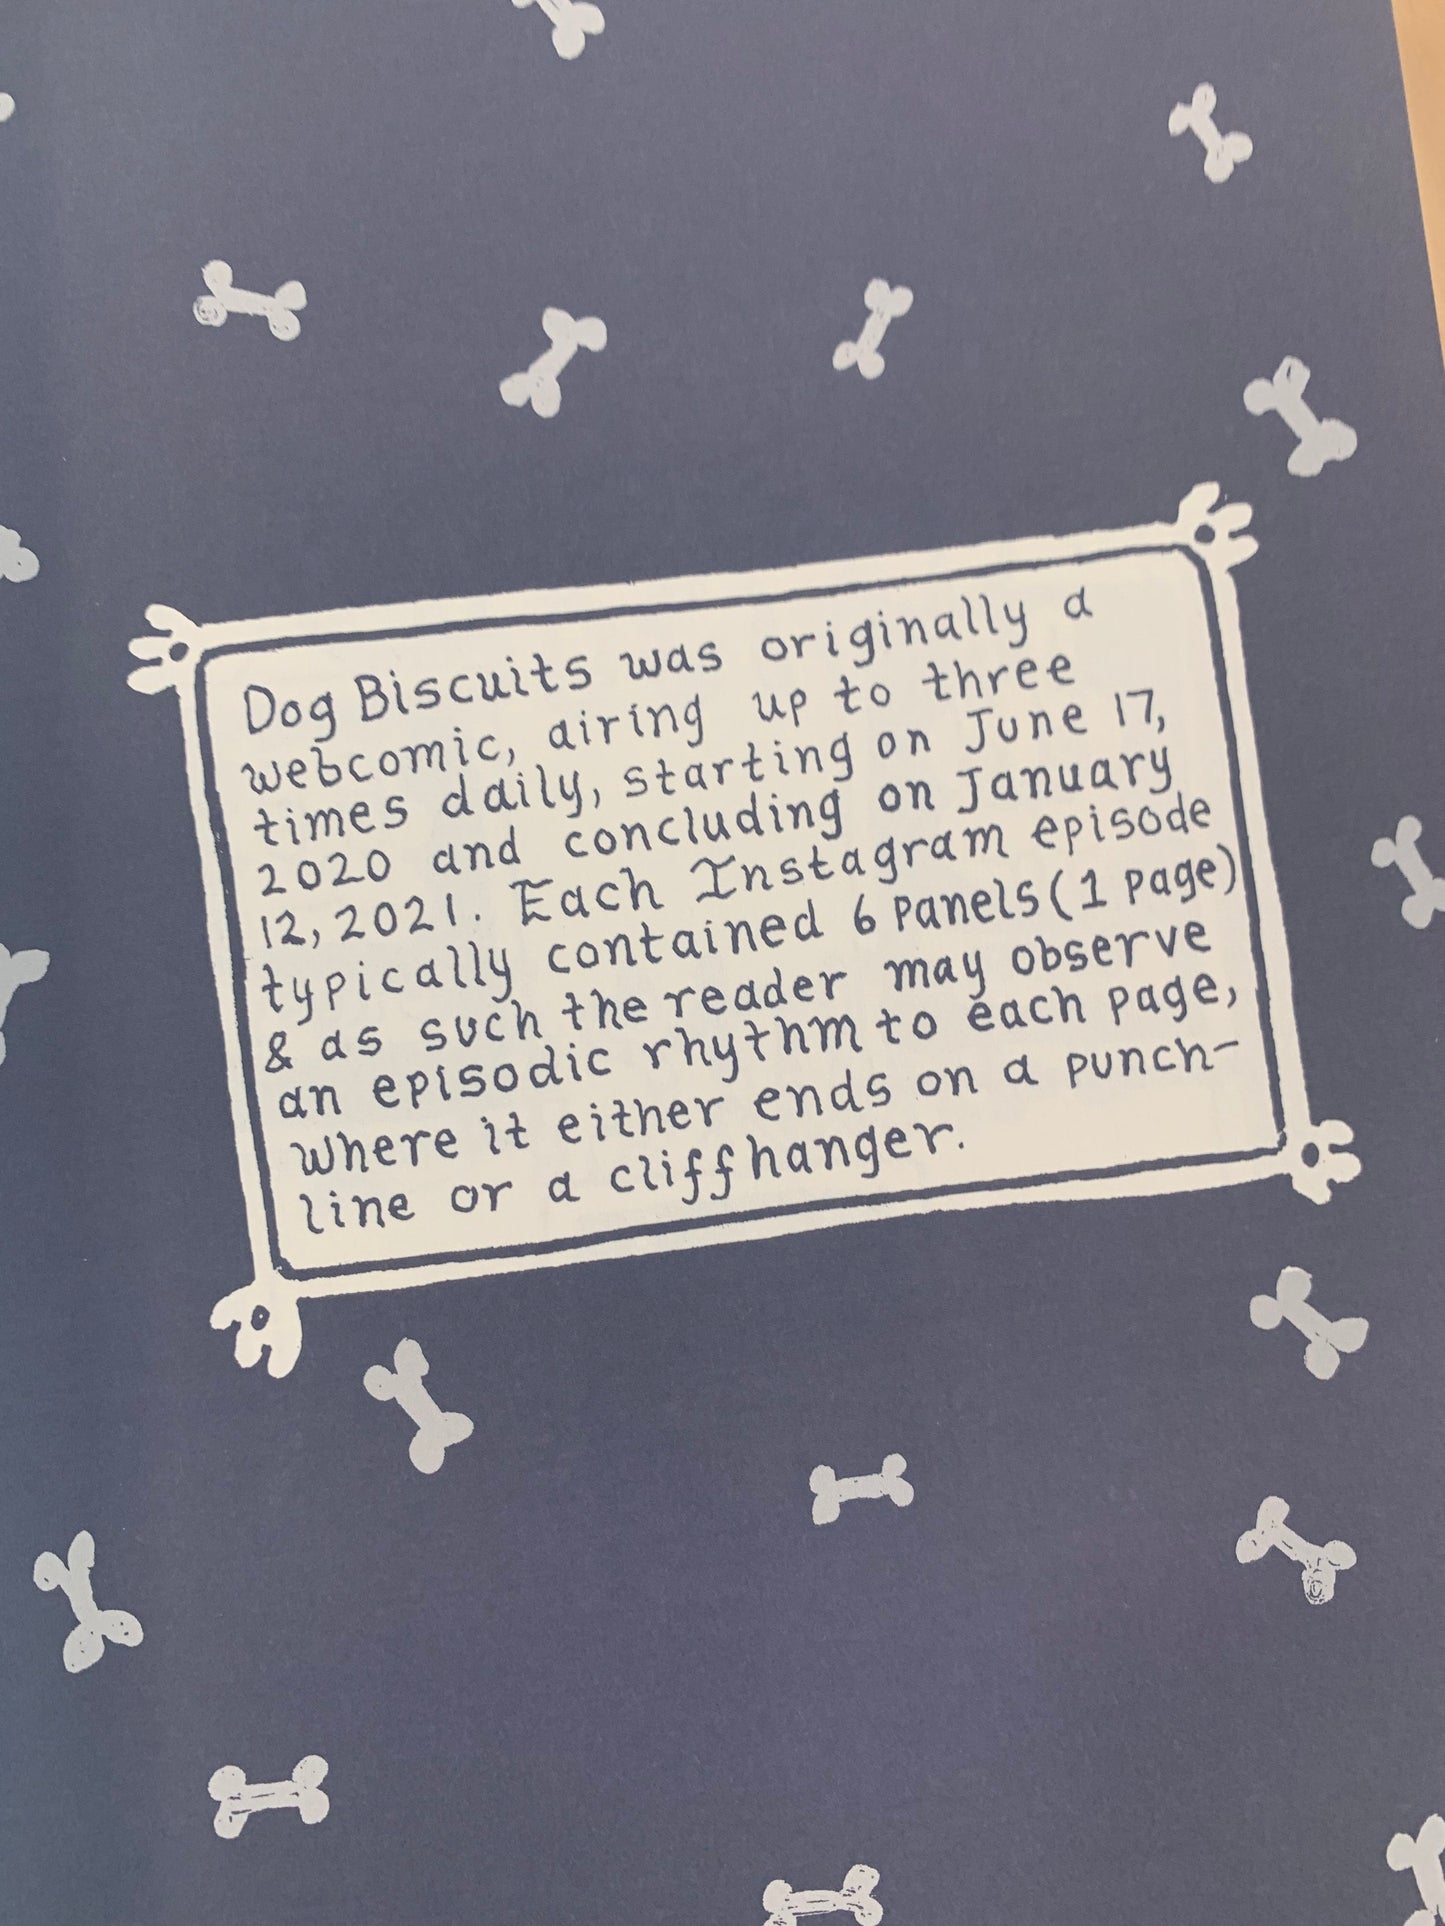 Dog Biscuits was originally a
webcomic, airing up to three
times daily, starting on June 17,
2020 and concluding on January
12, 2021. Each Instagram episode
typically contained 6 panels (1 page)
& as such the reader may observe
an episodic rhythm to each page,
where it either ends on a punch-
line or a cliffhanger.